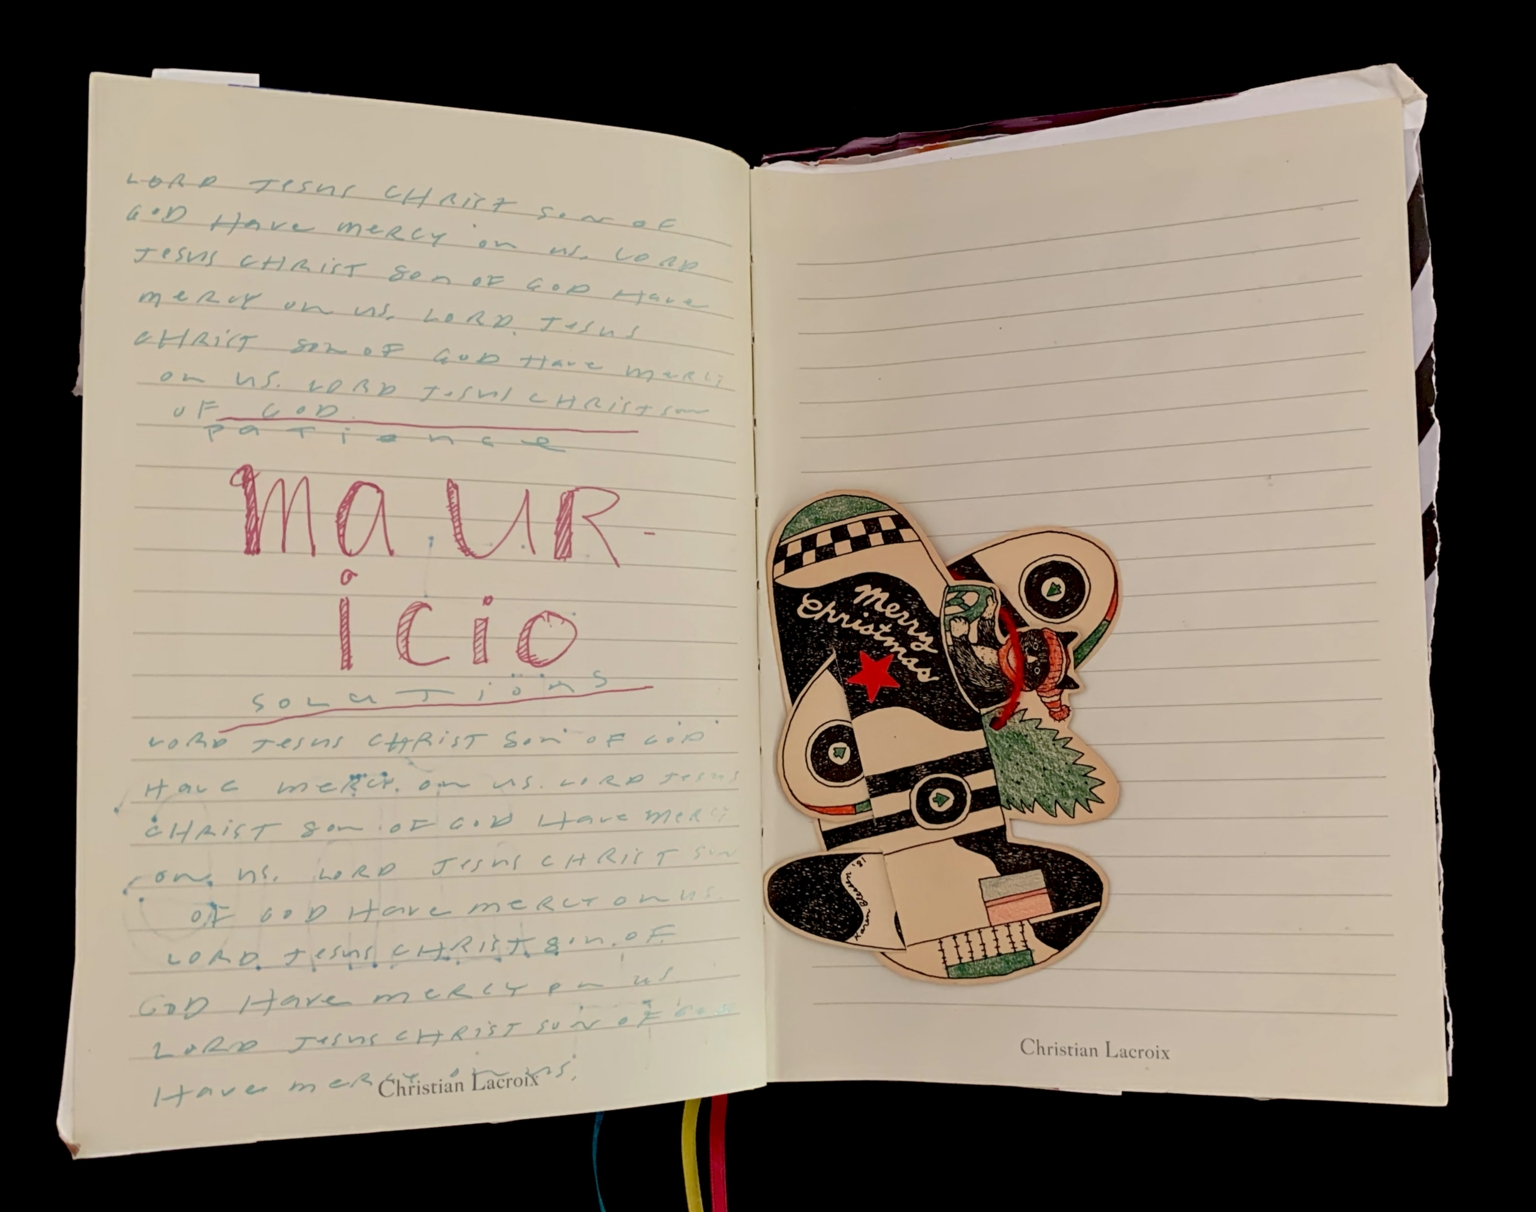 LORD Jesus CHRIST son OF
GOD Have mercy on us. LORD
Jesus CHRIST son OF GOD Have
mercy on us. LORD. Jesus
CHRIST son OF GOD Have mercy
on us. LORD Jesus CHRIST son
OF GOD.
patience
maUR-
icio
solutions
LORD Jesus CHRIST son OF GOD
Have mercy. on us. LORD Jesus
CHRIST son OF GOD Have mercy
on us. LORD Jesus CHRIST son
OF GOD Have mercy on us.
LORD Jesus CHRIST son. OF
GOD Have mercy on us.
LORD Jesus CHRIST son OF GOD
Have mercy on us.
Christian Lacroix
Merry
Christmas
Karen
Christian Lacroix